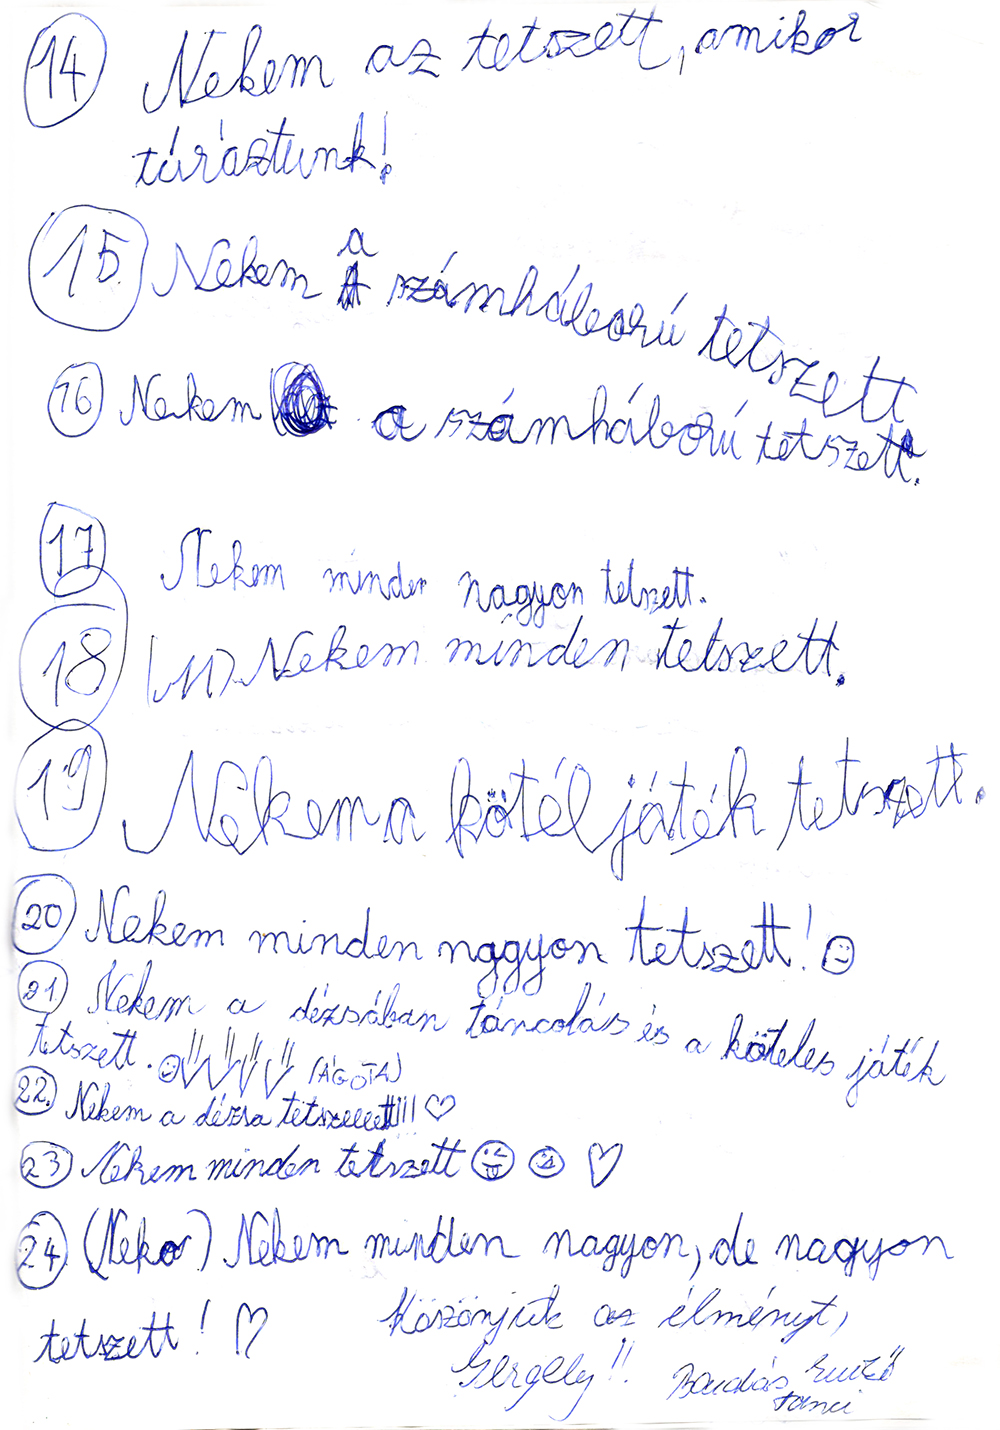 14 Nekem az tetszett, amikor
túráztunk!
15. Nekem a számháború tetszett
16 Nekem a számháború tetszett.
17 Nekem minden nagyon tetszett.
18 Nekem minden tetszett.
19 Nekem a kötél játék tetszett.
20 Nekem minden nagyon tetszett!
21 Nekem a dézsában táncolás és a köteles játék
tetszett. (ÁGOTA)
22. Nekem a dézsa tetszeeeett!!! ♡
23 Nekem minden tetszett ♡
24. Nekem minden nagyon, de nagyon
tetszett! ♡
Köszönjük az élményt,
Gergely!!
tanci